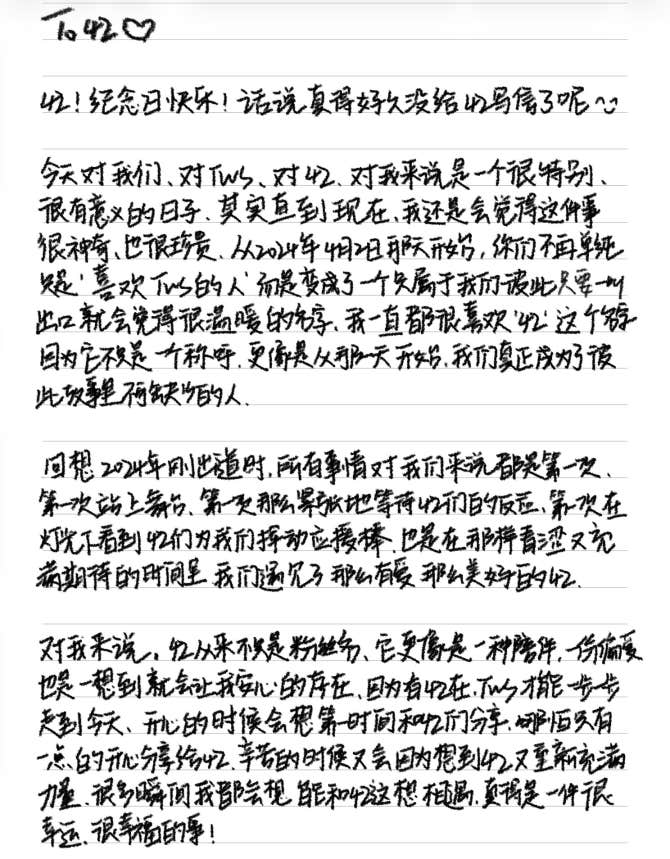 To 42♡
42！纪念日快乐！话说真得好久没给42写信了呢~
今天对我们、对TWS、对42、对我来说是一个很特别、
很有意义的日子、其实直到现在、我还是会觉得这件事
很神奇、也很珍贵、从2024年4月2日那天开始，你们不再单纯
只是'喜欢TWS的人'而是变成了一个只属于我们彼此只要一叫
出口就会觉得很温暖的名字、我一直都很喜欢'42'这个名字
因为它不只是一个称呼、更像是从那一天开始、我们真正成为了彼
此故事里不可缺少的人、
回想2024年刚出道时、所有事情对我们来说都是第一次、
第一次站上舞台、第一次那么紧张地等待42们的反应、第一次在
灯光下看到42们为我们挥动应援棒、也是在那样青涩又充
满期待的时间里 我们遇见了那么有爱 那么美好的42、
对我来说，42从来不只是粉丝名、它更像是一种陪伴、一份偏爱
也是一想到就会让我安心的存在、因为有42在、TWS才能一步一步
走到今天、开心的时候会想第一时间和42们分享、哪怕只有
一点的开心分享给42、辛苦的时候又会因为想到42又重新充满
力量、很多瞬间我都会想 能和42这想相遇、真得是一件很
幸运、很幸福的事！